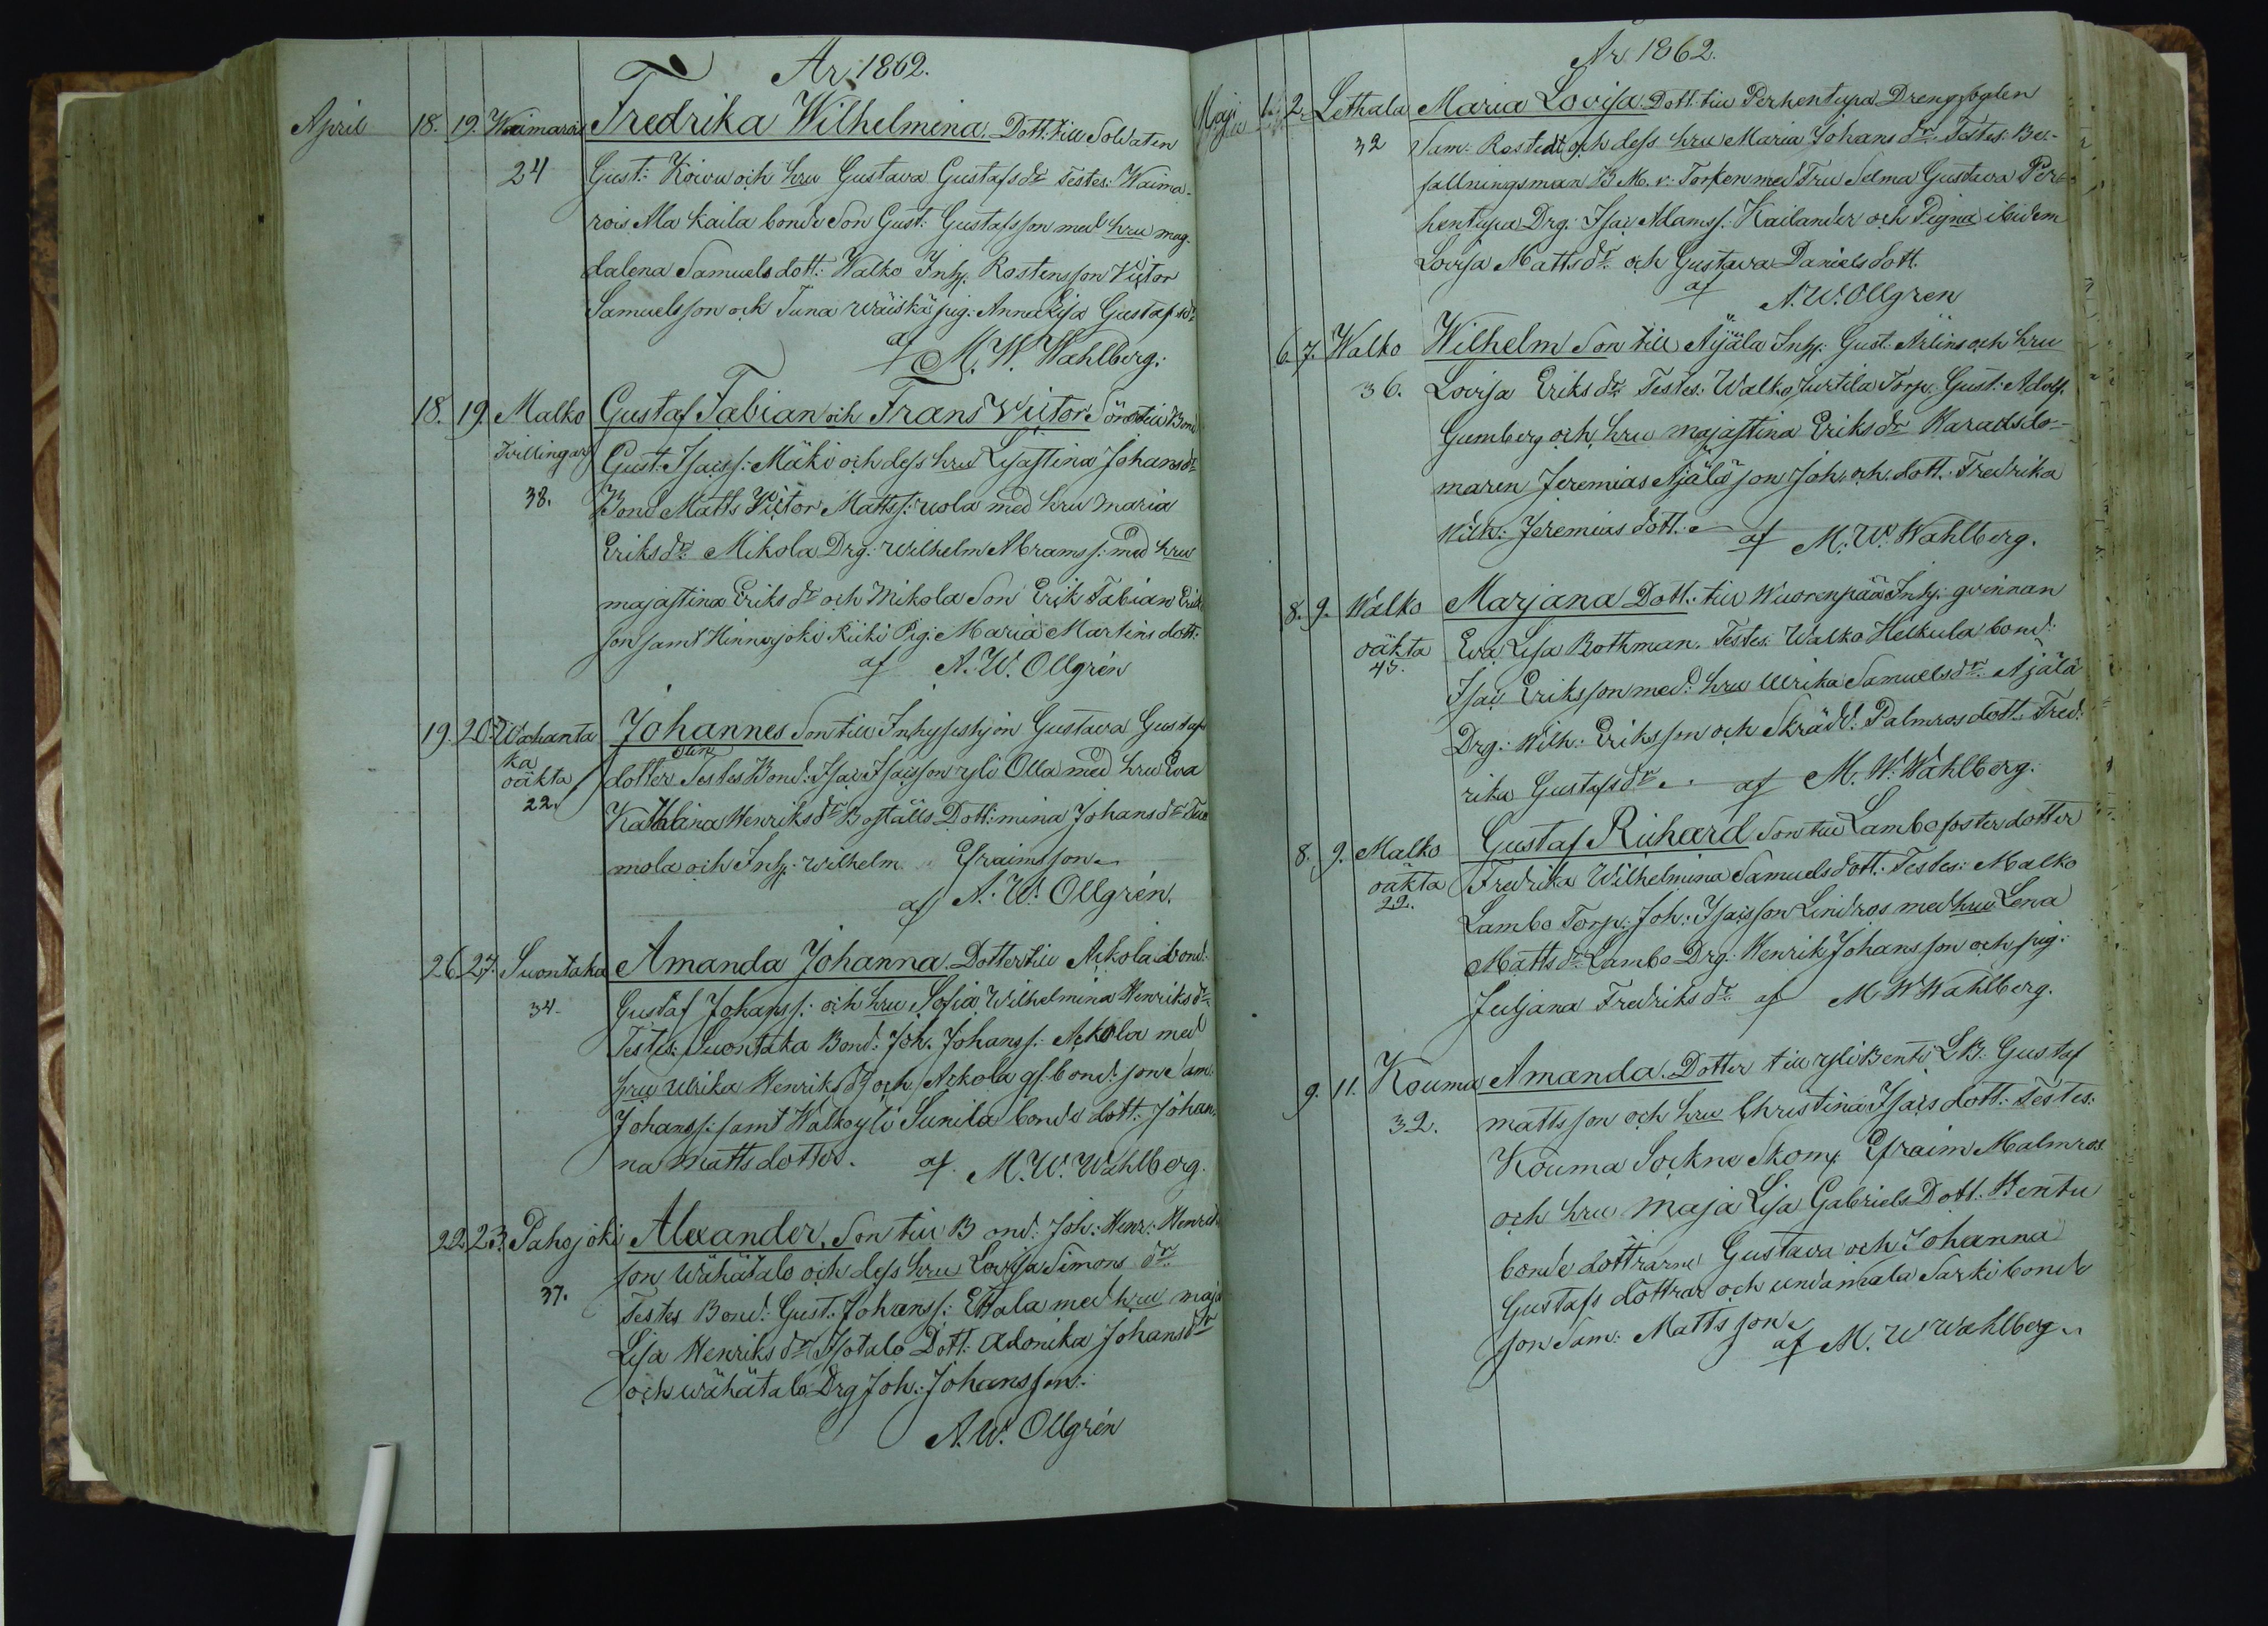 År 1862.
April 18. 19. Waimarois Fredrika Wilhelmina. Dott. till Soldaten
24 Gust: Koivu och hru Gustava Gustafsdr Testes: Waima-
rois Ala Kaila bonde Son Gust: Gustafsson med hru mag-
dalena Samuelsdott: Walko Inh. Rostensson Victor
Samuelsson och Tuna wäiskä pig. Anna Lisa Gustafsdr
af M. W. Wahlberg.
18. 19. Malko Gustaf Fabian och Frans Victor Söner till Bond
Tvillingar Gust. Isaiss: Mäki och dess hru Lisastina Johansdr
38. Bond Matts Victor Mattss: uola med hru Maria
Eriksdr Mikola Drg: Wilhelm Abramss: med hru
majastina Eriksdr och Mikola Son Erik Fabian Eriks
son samt Hinnerjoki Riiki Pig: Maria Martinsdott:
af A. W. Ollgrén
19. 20. Wahanta Johannes Son till Inhyseshjon Gustava Gustafs
ka
oäkta dotter Testes Bond: Isai Isaisson yli Olla med hru Eva
22. Kathlina Henriksdr Boställs Dott: mina Johansdr
mola och Inh. Wilhelm Efraimsson
af A. W. Ollgrén.
26. 27. Suontaka Amanda Johanna. Dotter till Arkola bond:
34. Gustaf Johanss: och hru Sofia Wilhelmina Henriksdr
Testes: Suontaka Bond: Joh. Johanss: Arkola med
hru Ulrika Henriksdr och Arkola gl. bond: son Sam:
Johanss: samt Walko yli Sunila bonde dott: Johan-
na Mattsdotter. af M. W. Wahlberg.
22. 23. Pahojoki Alexander. Son till Bond: Joh: Henr: Henriks
37. son Wähätalo och dess hru Lovisa Simons dr
Testes Bond: Gust: Johanss: Ettala med hru maja
Lisa Henriksdr Isotalo Dott: Adonika Johansdr
och Wähätalo Drg Joh: Johansson.
A. W. Ollgrén
År 1862.
Maji 1. 2. Lethala Maria Lovisa. Dott. till Perhentupa Dreng
32 Sam: Rostedt och dess hru Maria Johansdr. Testes: Be-
fallningsman B. M. v: Torken med Fru Selma Gustava Per-
hentupa Drg: Isai Adamss: Kailander och Pigna ibidem
Lovisa Mattsdr. och Gustava Danielsdott.
af A. W. Ollgren
6. 7. Walko Wilhelm Son till Äijälä Inh: Gust: Arlin och hru
36. Lovisa Eriksdr Testes: Walko Jurtila Torp. Gust: Adolf.
Gumberg och hru majastina Eriksdr Haradsdo-
maren Jeremias Äijälä son Joh. och dott. Fredrika
Wilh: Jeremias dott: af M. W. Wahlberg.
8. 9. Walko Marjana Dott: till Wuorenpää Inh: qvinnan
oäkta Eva Lisa Rothman. Testes: Walko Heikula bond:
45. Isai Eriksson med: hru Ulrika Samuelsdr Äjälä
Drg: Wilh: Eriksson och Skräd: Palmros dott: Fred:
rika Gustafsdr af M. W. Wahlberg.
8. 9. Malko Gustaf Richard Son till Lambo fosterdotter
oäkta Fredrika Wilhelmina Samuelsdott: Testes: Malko
22. Lambo Torp: Joh: Isaisson Lindros med hru Lena
Mattsdr Lambo Drg: Henrik Johansson och pig:
Juljana Fredriksdr af M W Wahlberg.
9. 11. Kouma Amanda. Dotter till yli Benti LB. Gustaf
32. mattsson och hru Christina Isais dott: Testes:
Kouma Sockne Skom: Efraim Malmros
och hru Maja Lisa Gabriels Dott. Hentu
bonde döttrarne Gustava och Johanna
Gustafs döttrar och undamala Sarki bonde
son Sam: Mattsson
af M. W Wahlberg